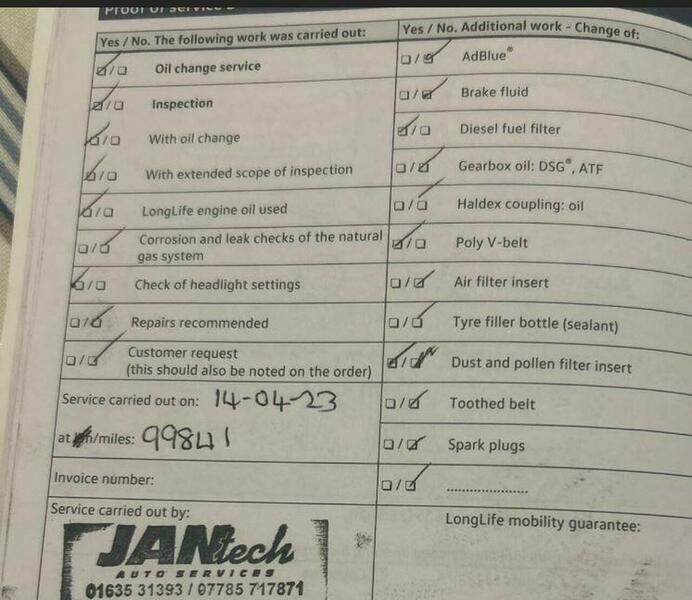 Proof of service
Yes / No. The following work was carried out:
/ Oil change service
/ Inspection
/ With oil change
/ With extended scope of inspection
/ LongLife engine oil used
/ Corrosion and leak checks of the natural
gas system
/ Check of headlight settings
/ Repairs recommended
/ Customer request
(this should also be noted on the order)
Service carried out on: 14-04-23
at km/miles: 99841
Invoice number:
Service carried out by:
JANtech
AUTO SERVICES
01635 31393 / 07785 717871
Yes / No. Additional work - Change of:
/ AdBlue®
/ Brake fluid
/ Diesel fuel filter
/ Gearbox oil: DSG®, ATF
/ Haldex coupling: oil
/ Poly V-belt
/ Air filter insert
/ Tyre filler bottle (sealant)
/ Dust and pollen filter insert
/ Toothed belt
/ Spark plugs
/ .....................
LongLife mobility guarantee: